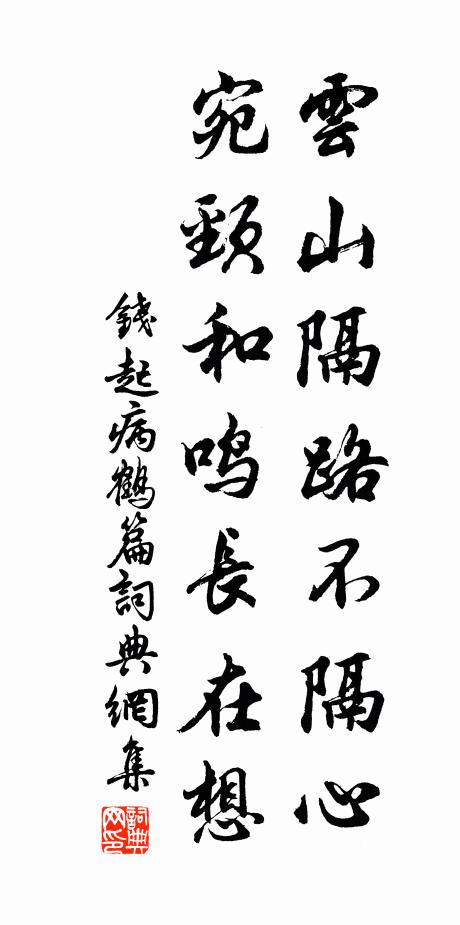 雲山隔路不隔心
宛頸和鳴長在想
錢起病鶴篇詞典網集
詞典网印